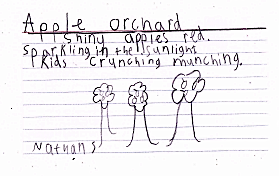 Apple orchard
Shiny apples red.
Sparkling in the sunlight
Kids crunching munching.
Nathan S